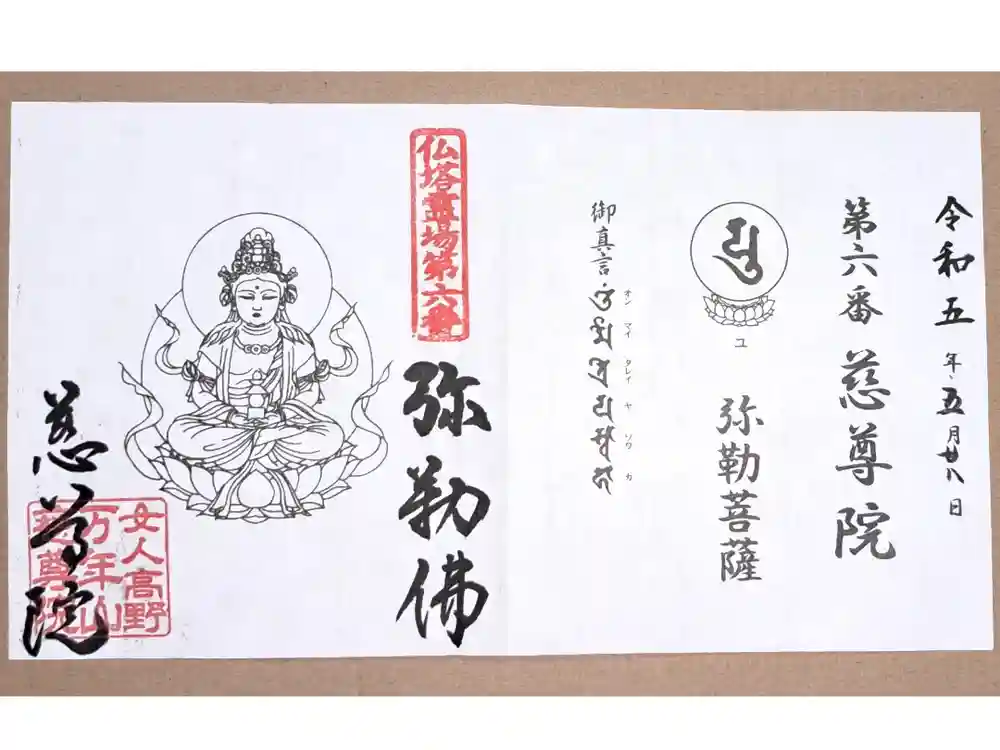 令和五年五月廿八日
第六番 慈尊院
ユ
弥勒菩薩
御真言
オン マイ タレイ ヤ ソワ カ
仏塔霊場第六番
弥勒佛
慈尊院
女人高野
万年山
慈尊院